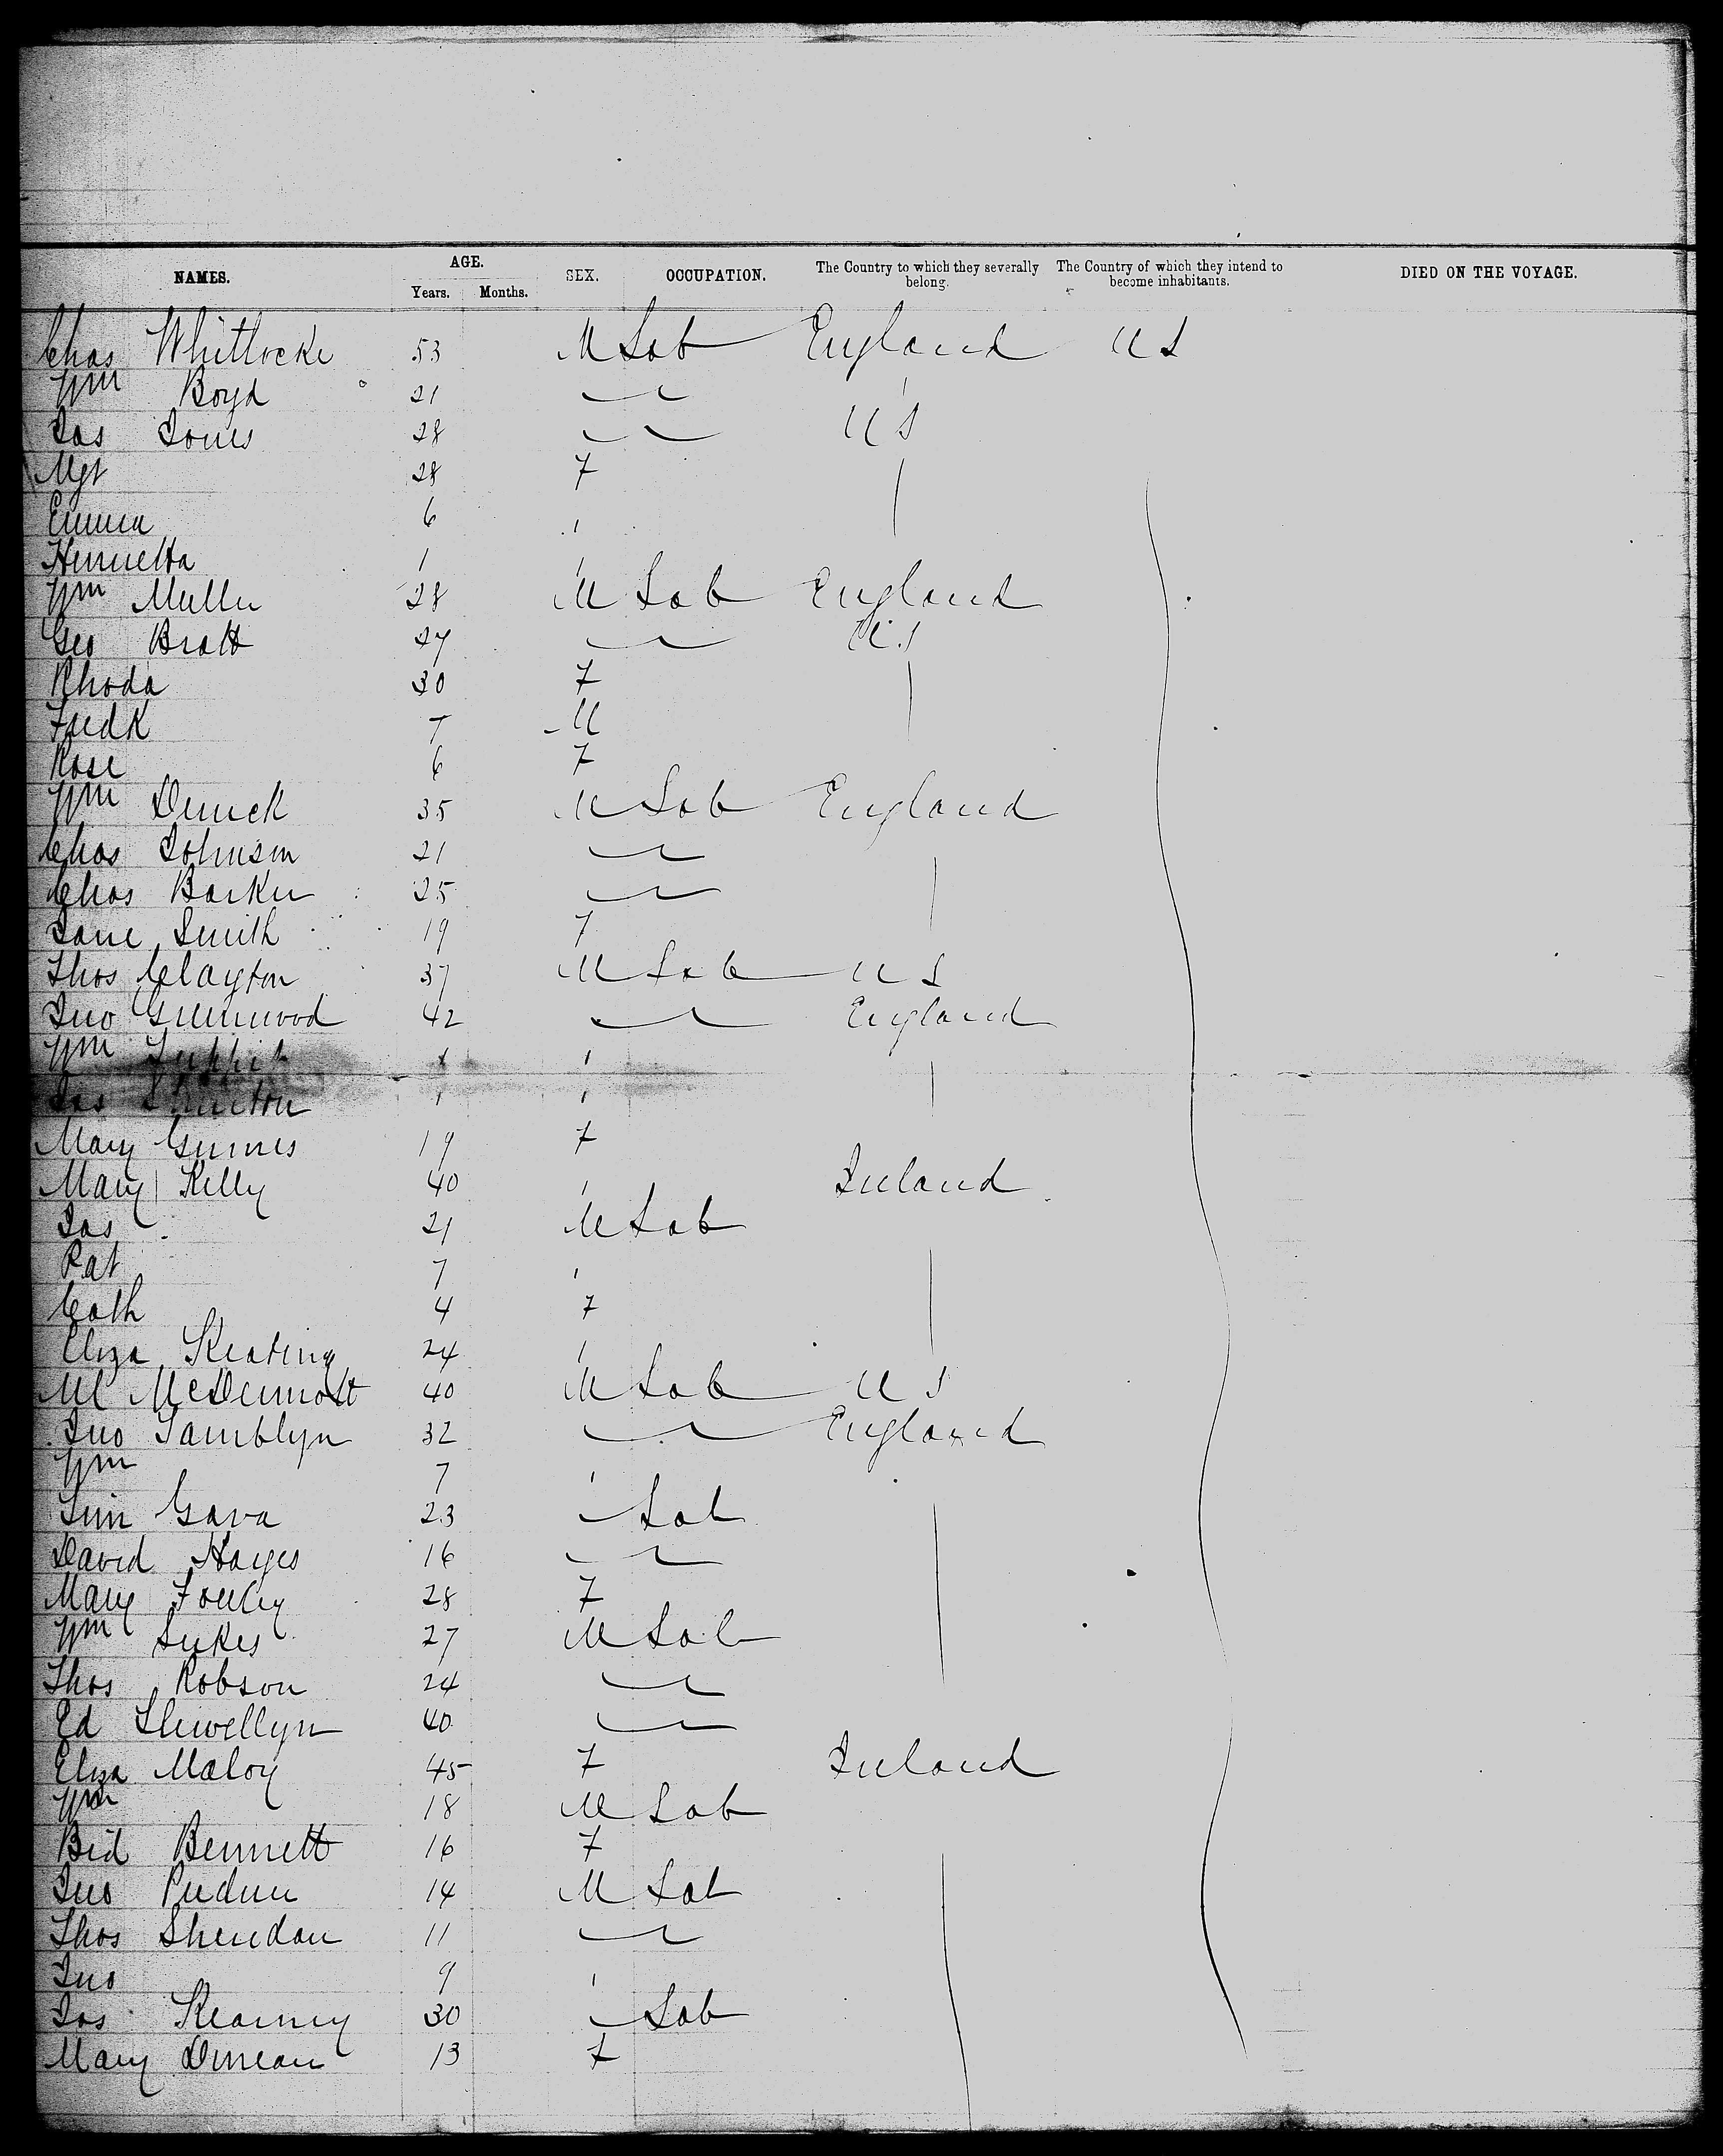 NAMES. AGE. Years. Months. SEX. OCCUPATION. The Country to which they severally belong. The Country of which they intend to become inhabitants. DIED ON THE VOYAGE.
Chas Whittocke 53 M Lab England U S
Wm Boyd 21
Jas Jones 28 U S
Mgt 28 F
Emma 6
Henrietta 1
Wm Muller 28 M Lab England
Geo Bratt 27 U.S
Rhoda 30 F
Fredk 7 M
Rose 6 F
Wm Derrick 35 M Lab England
Chas Johnson 21
Chas Barker 25
Jane Smith 19 F
Thos Clayton 37 M Lab U S
Jno Greenwood 42 England
Wm
Jas
Mary Grimes 19 F
Mary Kelly 40 Ireland
Jas 21 M Lab
Pat 7
Cath 4 F
Eliza Keating 24
Ml McDermott 40 M Lab U S
Jno Tamblyn 32 England
Wm 7
Gava 23 Lab
David Hayes 16
Mary 28 F
Wm Sykes 27 M Lab
Thos Robson 24
Ed Llewellyn 40
Eliza Maloy 45 F Ireland
Wm 18 M Lab
Bid Bennett 16 F
Jno 14 M Lab
Thos Sheridan 11
Jno 9
Jas Kearney 30 Lab
Mary Duncan 13 F